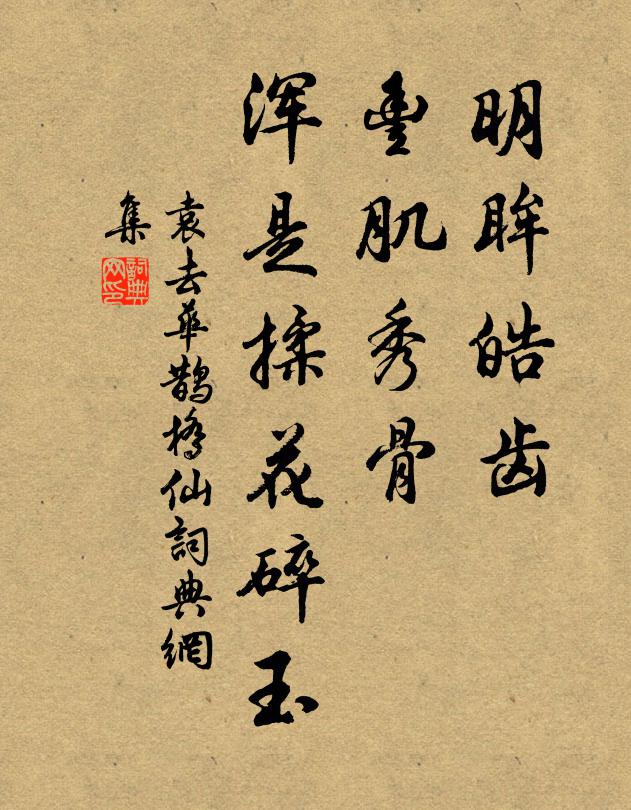 明眸皓齿
豊肌秀骨
浑是揉花碎玉
袁去华鹊桥仙詞典網
集
詞典
网印